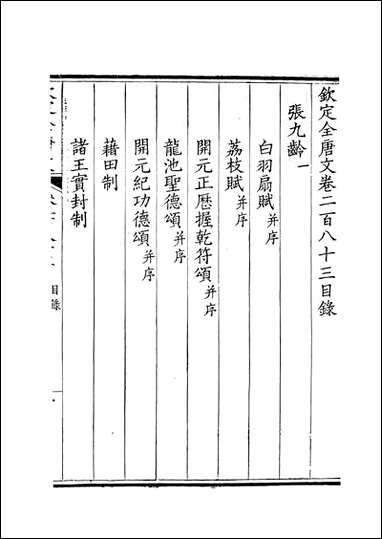 欽定全唐文卷二百八十三目錄
張九齡一
白羽扇賦并序
荔枝賦并序
開元正歷握乾符頌并序
龍池聖德頌并序
開元紀功德頌并序
藉田制
諸王實封制
目錄